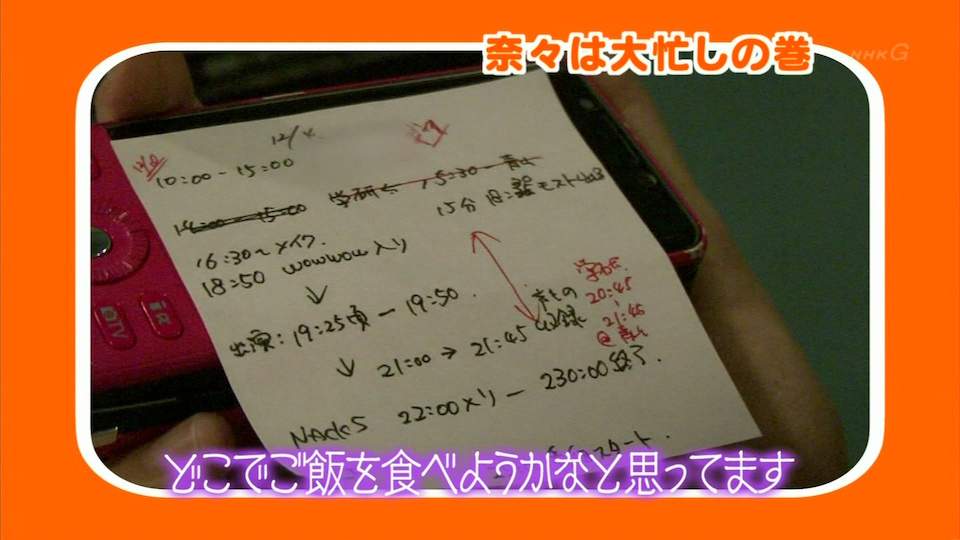 奈々は大忙しの巻
NHK G
12/4
10:00-15:00
14:00-15:00
学研 15:30-青山
15分
16:30〜メイク.
18:50 wowwow入り
↓
出演:19:25頃-19:50.
学研
20:45
21:45
@青山
収録
↓ 21:00→21:45
22:00メリ-230:00終了.
スタート.
TV
どこでご飯を食べようかなと思ってます